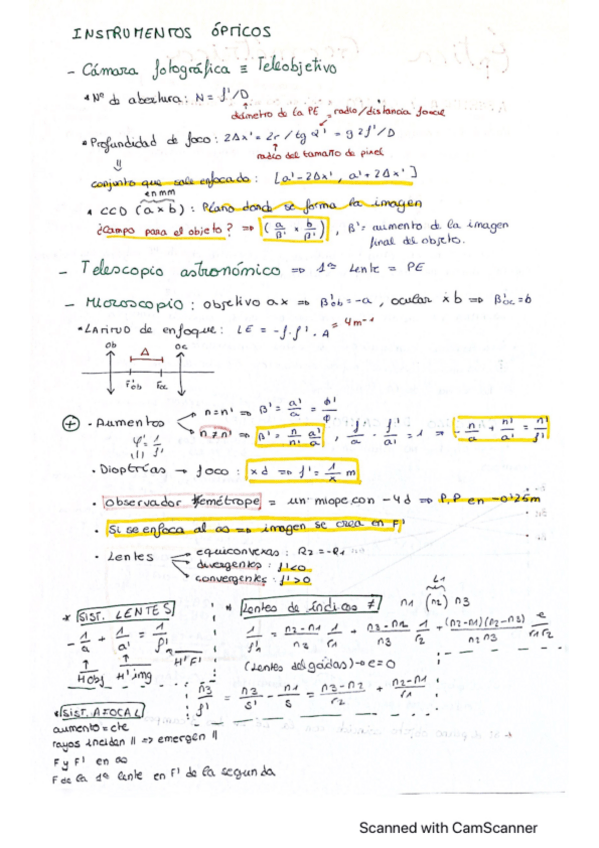 INSTRUMENTOS ÓPTICOS
- Cámara fotográfica ≡ Teleobjetivo
* Nº de abertura: N = f'/D
diámetro de la PE = radio/distancia focal
* Profundidad de foco: 2Δx' = 2r / tg Ω' = g 2f'/D
radio del tamaño de pixel
⇓
conjunto que sale enfocado: [a' - 2Δx', a' + 2Δx']
en mm
* CCD (a x b): Plano donde se forma la imagen
¿Campo para el objeto? ⇒ (a/β' x b/β'), β' = aumento de la imagen
final del objeto.
- Telescopio astronómico ⇒ 1ª lente = PE
- Microscopio: objetivo ax ⇒ β'ob = -a, ocular xb ⇒ β'oc = b
* Latitud de enfoque: LE = -f·f'·A = 4m⁻¹
Ob Oc
Δ
F'ob Foc
⊕ · Aumentos n=n' ⇒ β' = a'/a = φ'/φ
n≠n' ⇒ β' = n/n' a'/a, f/a · f'/a' = 1 ⇒ -n/a + n'/a' = n'/f'
φ' = 1/f'
· Dioptrías → foco: xd ⇒ f' = 1/x m
· Observador emétrope = un miope con -4d ⇒ P.P en -0'25m
· Si se enfoca al ∞ ⇒ imagen se crea en F'
· Lentes equiconvexas: R2 = -R1
divergentes: f'<0
convergentes: f'>0
* SIST. LENTES
-1/a + 1/a' = 1/f'
H obj H' img H'F'
* Lentes de índices ≠ n1 (n2) n3
L1
1/f' = n2-n1/n3 1/r1 + n3-n2/n3 1/r2 + (n2-n1)(n2-n3)/n2n3 e/r1r2
(Lentes delgadas) → e=0
n3/f' = n3/s' - n1/s = n3-n2/r2 + n2-n1/r1
* SIST. AFOCAL
aumento = cte
rayos inciden || ⇒ emergen ||
F y F' en ∞
F de la 1ª lente en F' de la segunda
Scanned with CamScanner